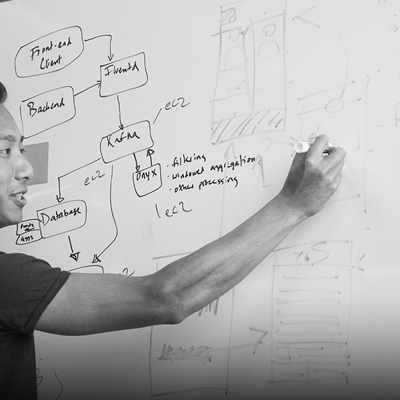 Front-end
Client
Fluentd
Backend
Kafka
ec2
ec2
Onyx
• filtering
• windowed aggregation
• other processing
1 ec2
Database
Apps